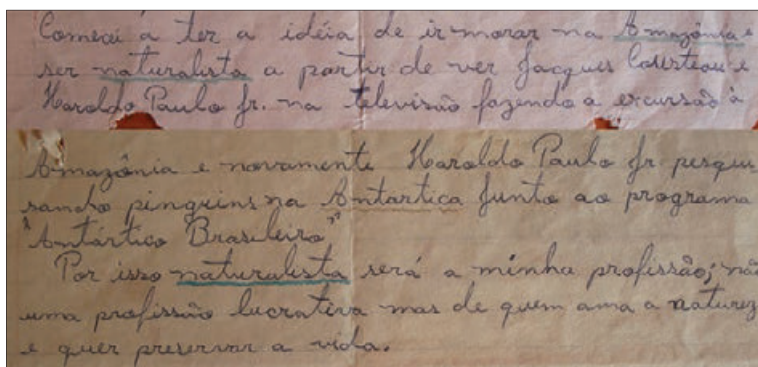 Comecei á ter a idéia de ir morar na Amazônia e
ser naturalista a partir de ver Jacques Cousteau e
Haroldo Paulo Jr. na televisão fazendo a excursão à
Amazônia e novamente Haroldo Paulo Jr pesqui
sando pinguins na Antartica junto ao programa
"Antártico Brasileiro"
Por isso naturalista será a minha profissão; não
uma profissão lucrativa mas de quem ama a naturez
e quer preservar a vida.